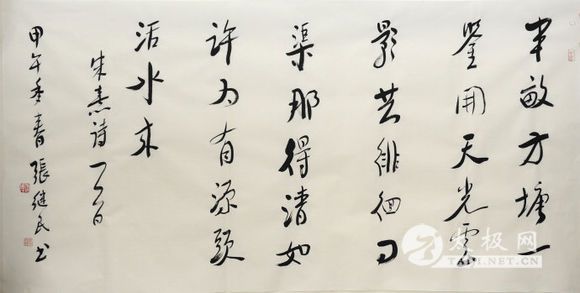 半畝方塘一
鑒開天光雲
影共徘徊问
渠那得清如
許为有源頭
活水来
朱熹詩一首
甲午季春張继民书
太极网
TAIJI.NET.CN